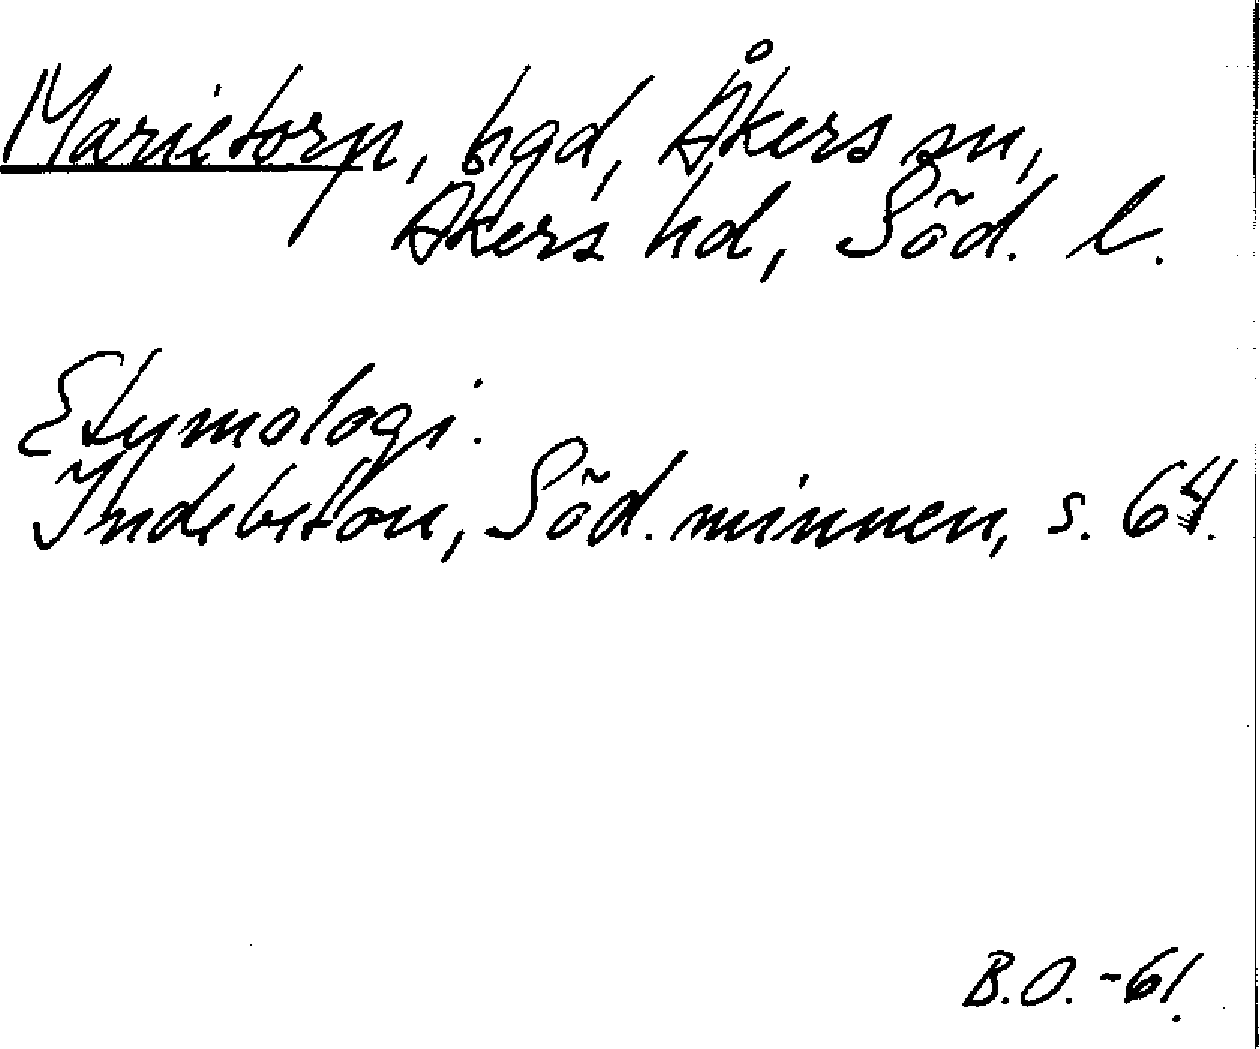 Marietorp, hgd, Åkers sn,
Åkers hd, Söd. l.
Etymologi.
Indebetou, Söd. minnen, s. 64.
B.O. -61.